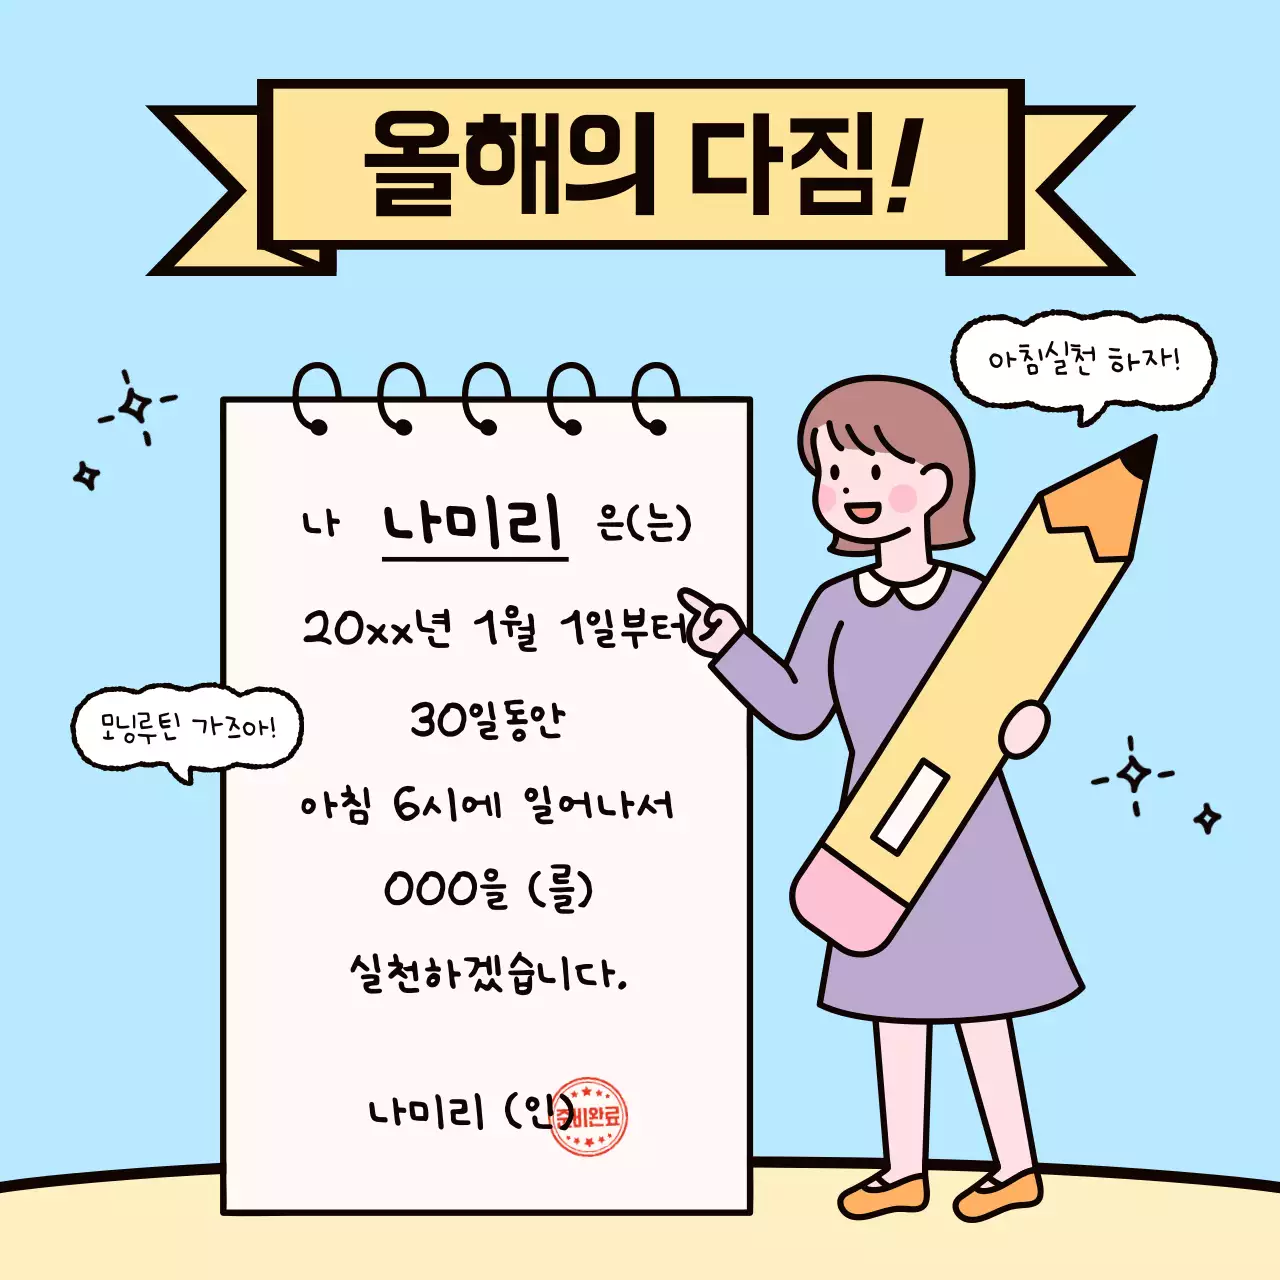 올해의 다짐!
아침실천 하자!
나 나미리 은(는)
20xx년 1월 1일부터
30일동안
모닝루틴 가즈아!
아침 6시에 일어나서
000을 (를)
실천하겠습니다.
나미리 (인)
준비완료